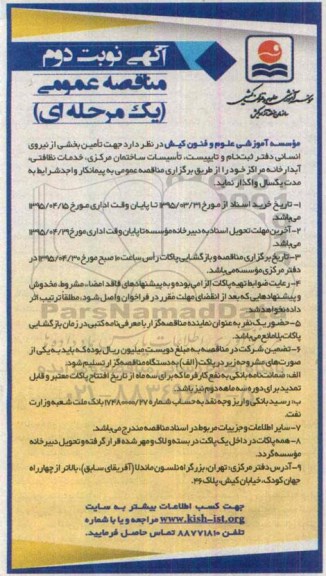 آگهی نوبت دوم
مناقصه عمومی
(یک مرحله ای)
مؤسسه آموزشی علوم و فنون کیش در نظر دارد جهت تأمین بخشی از نیروی
انسانی دفتر ثبتنام و تایپیست، تأسیسات ساختمان مرکزی، خدمات نظافتی،
آبدارخانه مراکز خود را از طریق برگزاری مناقصه عمومی به پیمانکار واجد شرایط به
مدت یکسال واگذار نماید.
۱- تاریخ خرید اسناد از مورخ ۱۳۹۵/۰۳/۳۱ تا پایان وقت اداری مورخ ۱۳۹۵/۰۴/۵
می‌باشد.
۲- آخرین مهلت تحویل اسناد به دبیرخانه مؤسسه تا پایان وقت اداری مورخ ۱۳۹۵/۰۴/۲۹
می‌باشد.
۳- تاریخ برگزاری مناقصه و بازگشایی پاکات رأس ساعت ۱۰ صبح مورخ ۱۳۹۵/۰۴/۳۰ در
دفتر مرکزی مؤسسه می‌باشد.
۴- رعایت ضوابط تهیه پاکات الزامی بوده و به پیشنهادهای فاقد امضاء، مشروط، مخدوش
و پیشنهادهایی که بعد از انقضای مهلت مقرر در فراخوان واصل شود، مطلقاً ترتیب اثر
داده نخواهد شد.
۵- حضور یک نفر به عنوان نماینده مناقصه‌گزار با معرفی‌نامه کتبی در زمان بازگشایی
پاکات بلامانع می‌باشد.
۶- تضمین شرکت در مناقصه به مبلغ دویست میلیون ریال بوده که باید به یکی از
صورت‌های مشروحه زیر در پاکت (الف) به دستگاه مناقصه‌گزار تسلیم شود:
الف: ضمانت‌نامه بانکی به نفع کارفرما که برای سه ماه از تاریخ افتتاح پاکات معتبر و قابل
تمدید برای دوره سه ماهه دوم نیز باشد.
ب: رسید بانکی واریز وجه نقد به حساب شماره بانک ملت شعبه وزارت
نفت.
۷- سایر اطلاعات و جزییات مربوطه در اسناد مناقصه مندرج می‌باشد.
۸- همه پاکات در داخل یک پاکت در بسته و لاک و مهر شده قرار گرفته و تحویل دبیرخانه
مؤسسه گردد.
۹- آدرس دفتر مرکزی: تهران، بزرگراه نلسون ماندلا (آفریقای سابق)، بالاتر از چهارراه
جهان کودک، خیابان کیش، پلاک ۴۶.
جهت کسب اطلاعات بیشتر به سایت
www.kish-ist.org مراجعه و یا با شماره
تلفن ۸۸۷۷۱۸۱۰ تماس حاصل فرمایید.
ParsNamadData